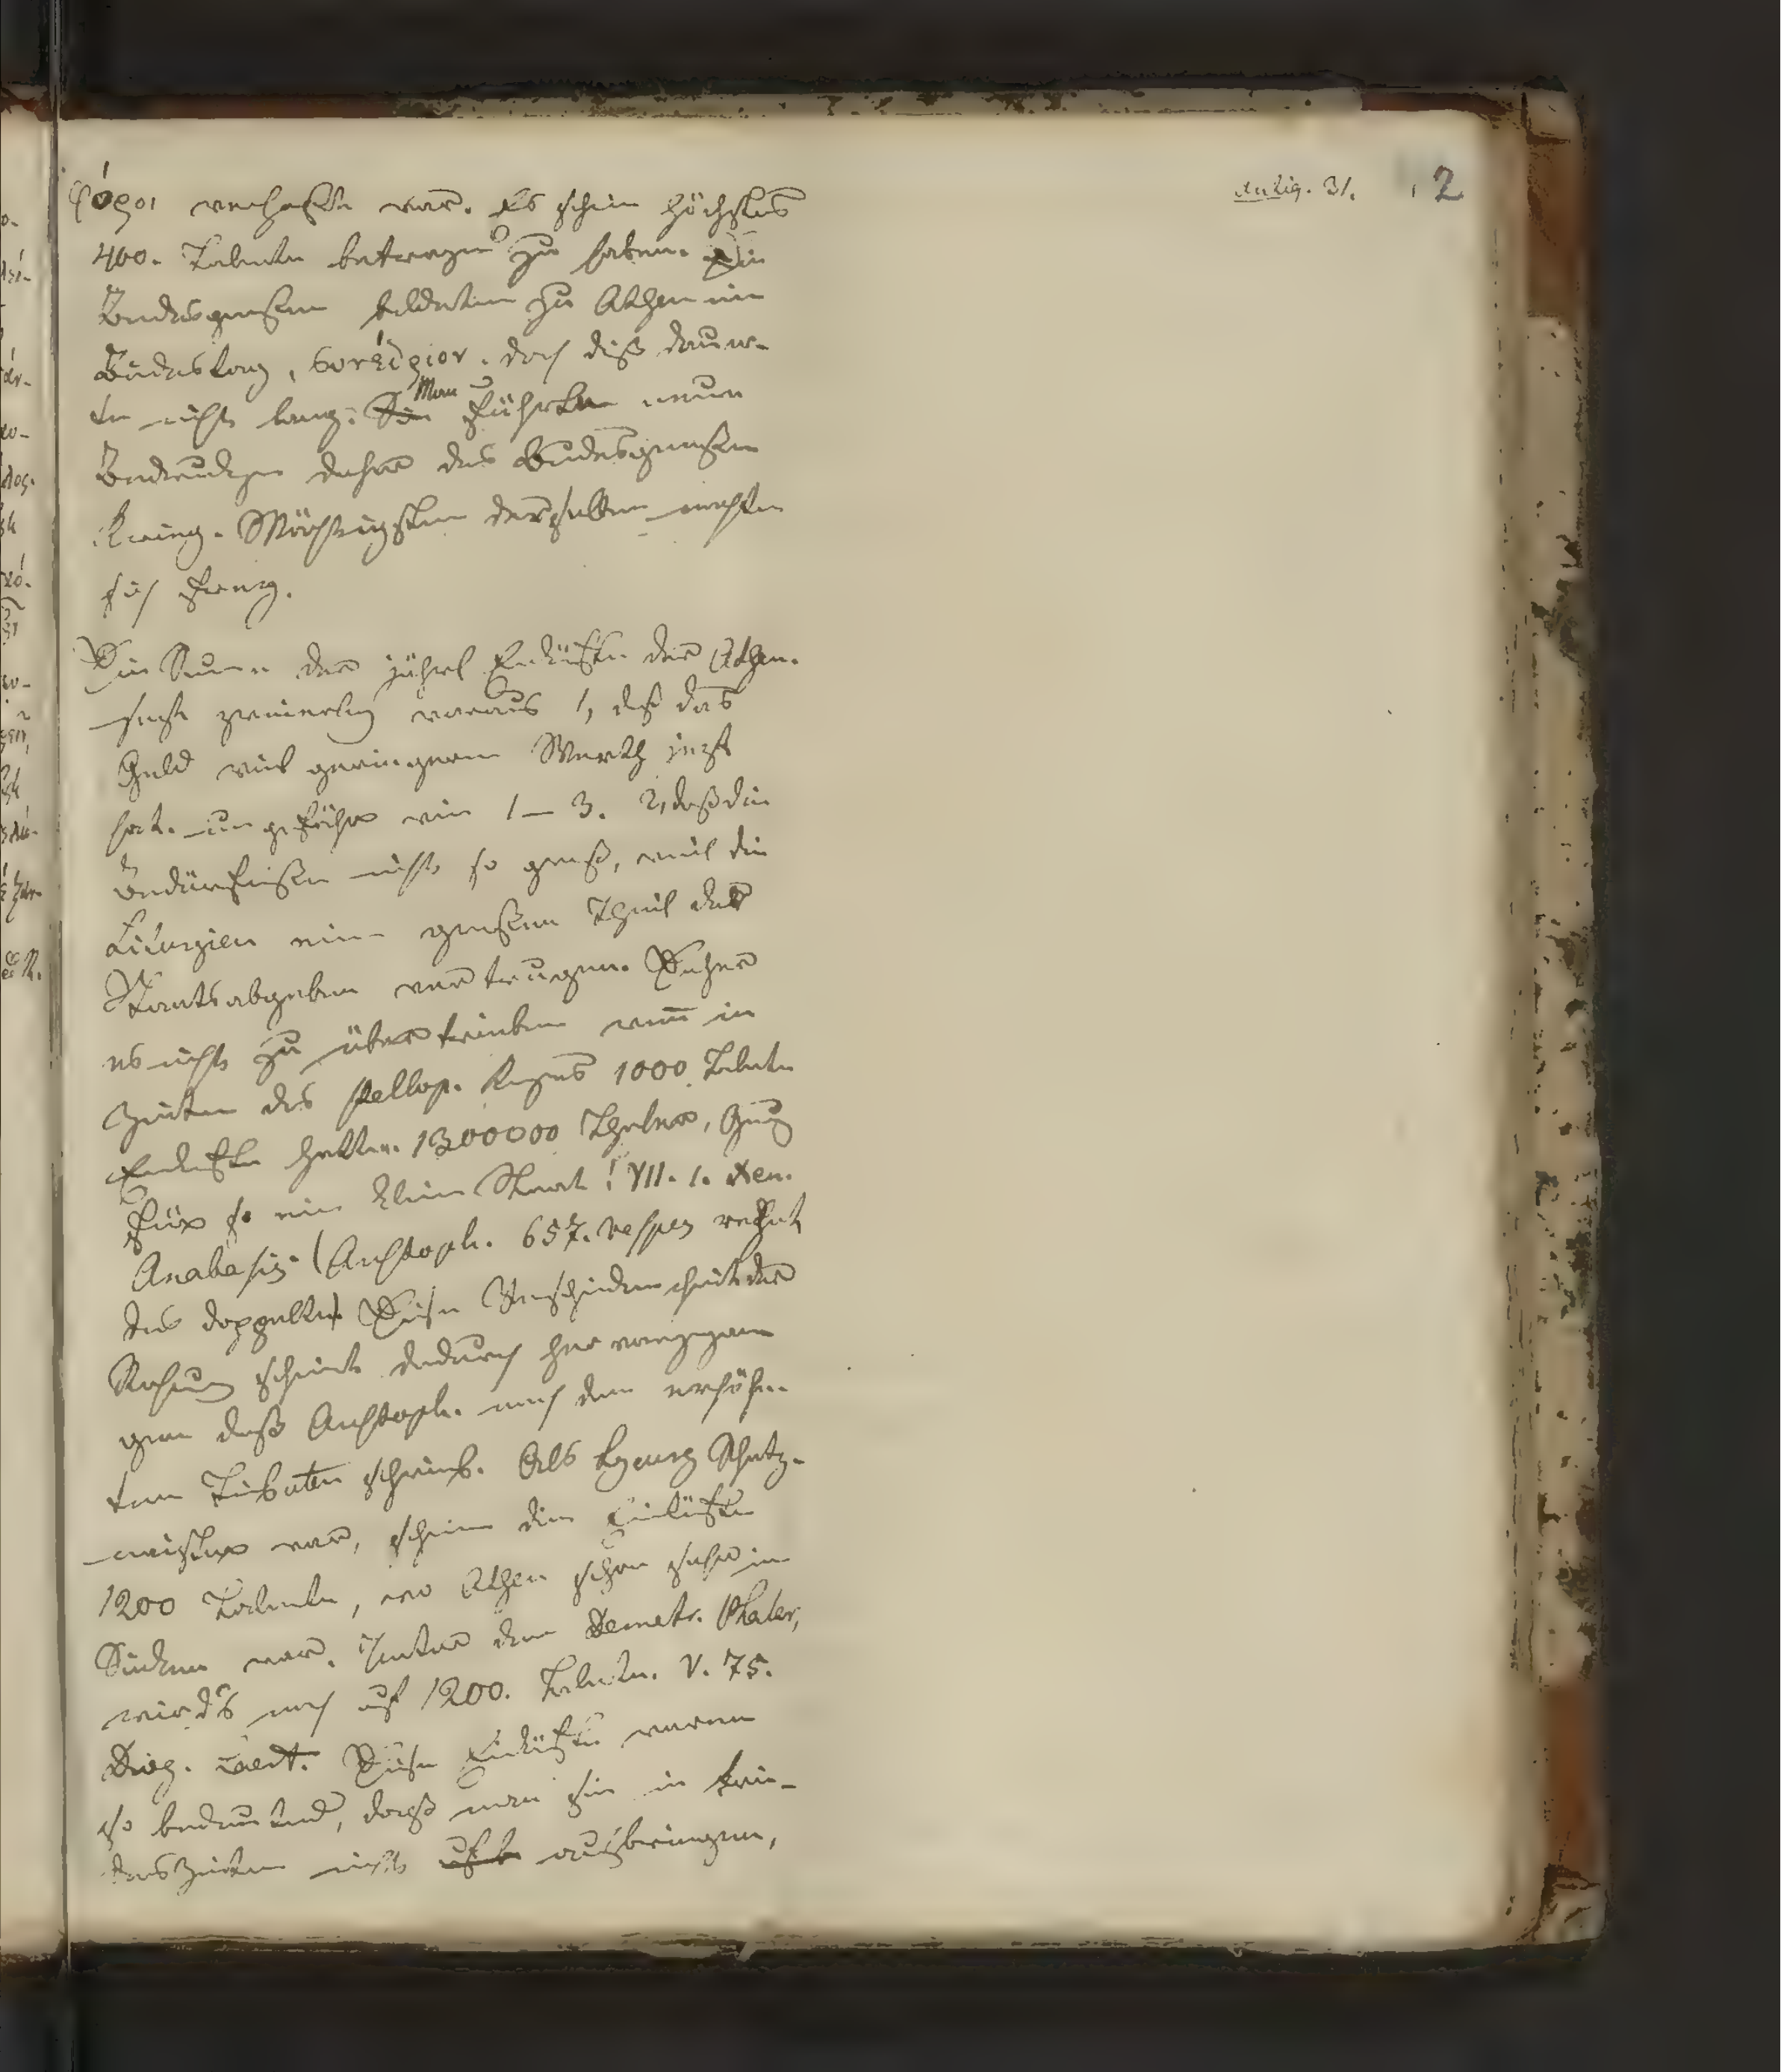 Antiq. 31. 2
φόροι verhaßte war. Es schein höchstens
400. Talente betragen zu haben. Die
Bundesgenoßen bildeten zu Athen ein
Bundestag, συνέδριον. doch diß dauer-
te nicht lang. Man führte neue
Bedrückgen daher das Bundesgenoßen
Krieg. Mächtigsten derselben machten
sich frey.
Die Summe der jährl Einkünfte der Athen.
sezt zweierley voraus 1, daß das
Geld viel geringern Werth jezt
hat. ungefähr wie 1 – 3. 2, daß die
Bedürfnißen nicht so groß, weil die
Liturgien ein großen Theil der
Staatsabgaben vertrugen. Daher
es nicht zu übertrieben weñ in
Zeiten des Pellop. Kriegs 1000 Talente
Einkünfte hatten. 1300000 Thaler, Gnug
für so ein klein Staat! VII. 1. Xen.
Anabasis. (Aristoph. 657. Vespes rechnet
das doppelte) Diese Verschiedenheit der
Rechnung scheint dadurch hervorgegan
gen daß Aristoph. nach den erhöh-
ten Tributen schrieb. Als Lycurg Schatz-
meister war, scheinen die Einkünfte
1200 Talente, wo Athen schon sehr im
Sinken war. Unter dem Demetr. Phaler,
wird's noch auf 1200. Talente. V. 75.
Diog. Laert. Diese Einkünfte waren
so bedeutend, daß man sie in Frie-
denszeiten nicht ausbringen,